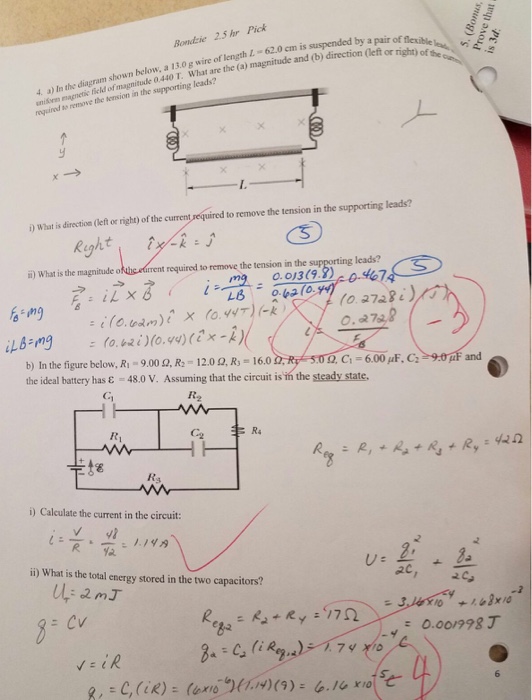 Bondzie 2.5 hr Pick
5. (Bonus,
Prove that
is 3d:
4. a) In the diagram shown below, a 13.0 g wire of length L = 62.0 cm is suspended by a pair of flexible leads
uniform magnetic field of magnitude 0.440 T. What are the (a) magnitude and (b) direction (left or right) of the
required to remove the tension in the supporting leads?
y
x
L
i) What is direction (left or right) of the current required to remove the tension in the supporting leads?
Right î x -k̂ = ĵ
5
ii) What is the magnitude of the current required to remove the tension in the supporting leads?
5
F_B = mg
iLB = mg
F⃗_B = iL⃗ x B⃗
i = mg/LB = 0.013(9.8)/0.62(0.44) = 0.467A
= i(0.62m)î x (0.44T)(-k̂)
= (0.2728i)(ĵ)
= (0.62i)(0.44)(î x -k̂)
i = 0.2728/F_B
-3
b) In the figure below, R₁ = 9.00 Ω, R₂ = 12.0 Ω, R₃ = 16.0 Ω, R₄ = 5.0 Ω, C₁ = 6.00 μF, C₂ = 9.0 μF and
the ideal battery has ε = 48.0 V. Assuming that the circuit is in the steady state.
C₁
R₂
R₁
C₂
R₄
ε
R₃
Req = R₁ + R₂ + R₃ + R₄ = 42Ω
i) Calculate the current in the circuit:
i = V/R = 48/42 = 1.14A
ii) What is the total energy stored in the two capacitors?
U = q₁²/2C₁ + q₂²/2C₂
U_T = 2mJ
= 3.16x10⁻⁴ + 1.68x10⁻³
= 0.001998 J
q = CV
Req2 = R₂ + R₄ = 17Ω
q₂ = C₂(iReq,2) = 1.74 x10⁻⁴ C
V = iR
q₁ = C₁(iR) = (6x10⁻⁶)(1.14)(9) = 6.16 x10⁻⁵ C
4
6